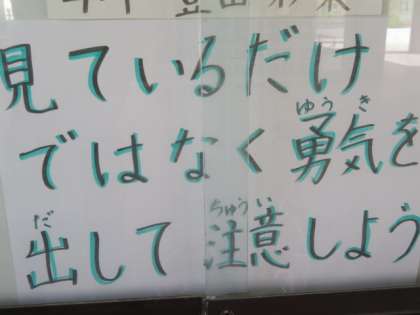 見ているだけ
ではなく勇気を
ゆうき
出して注意しよう
だ ちゅうい